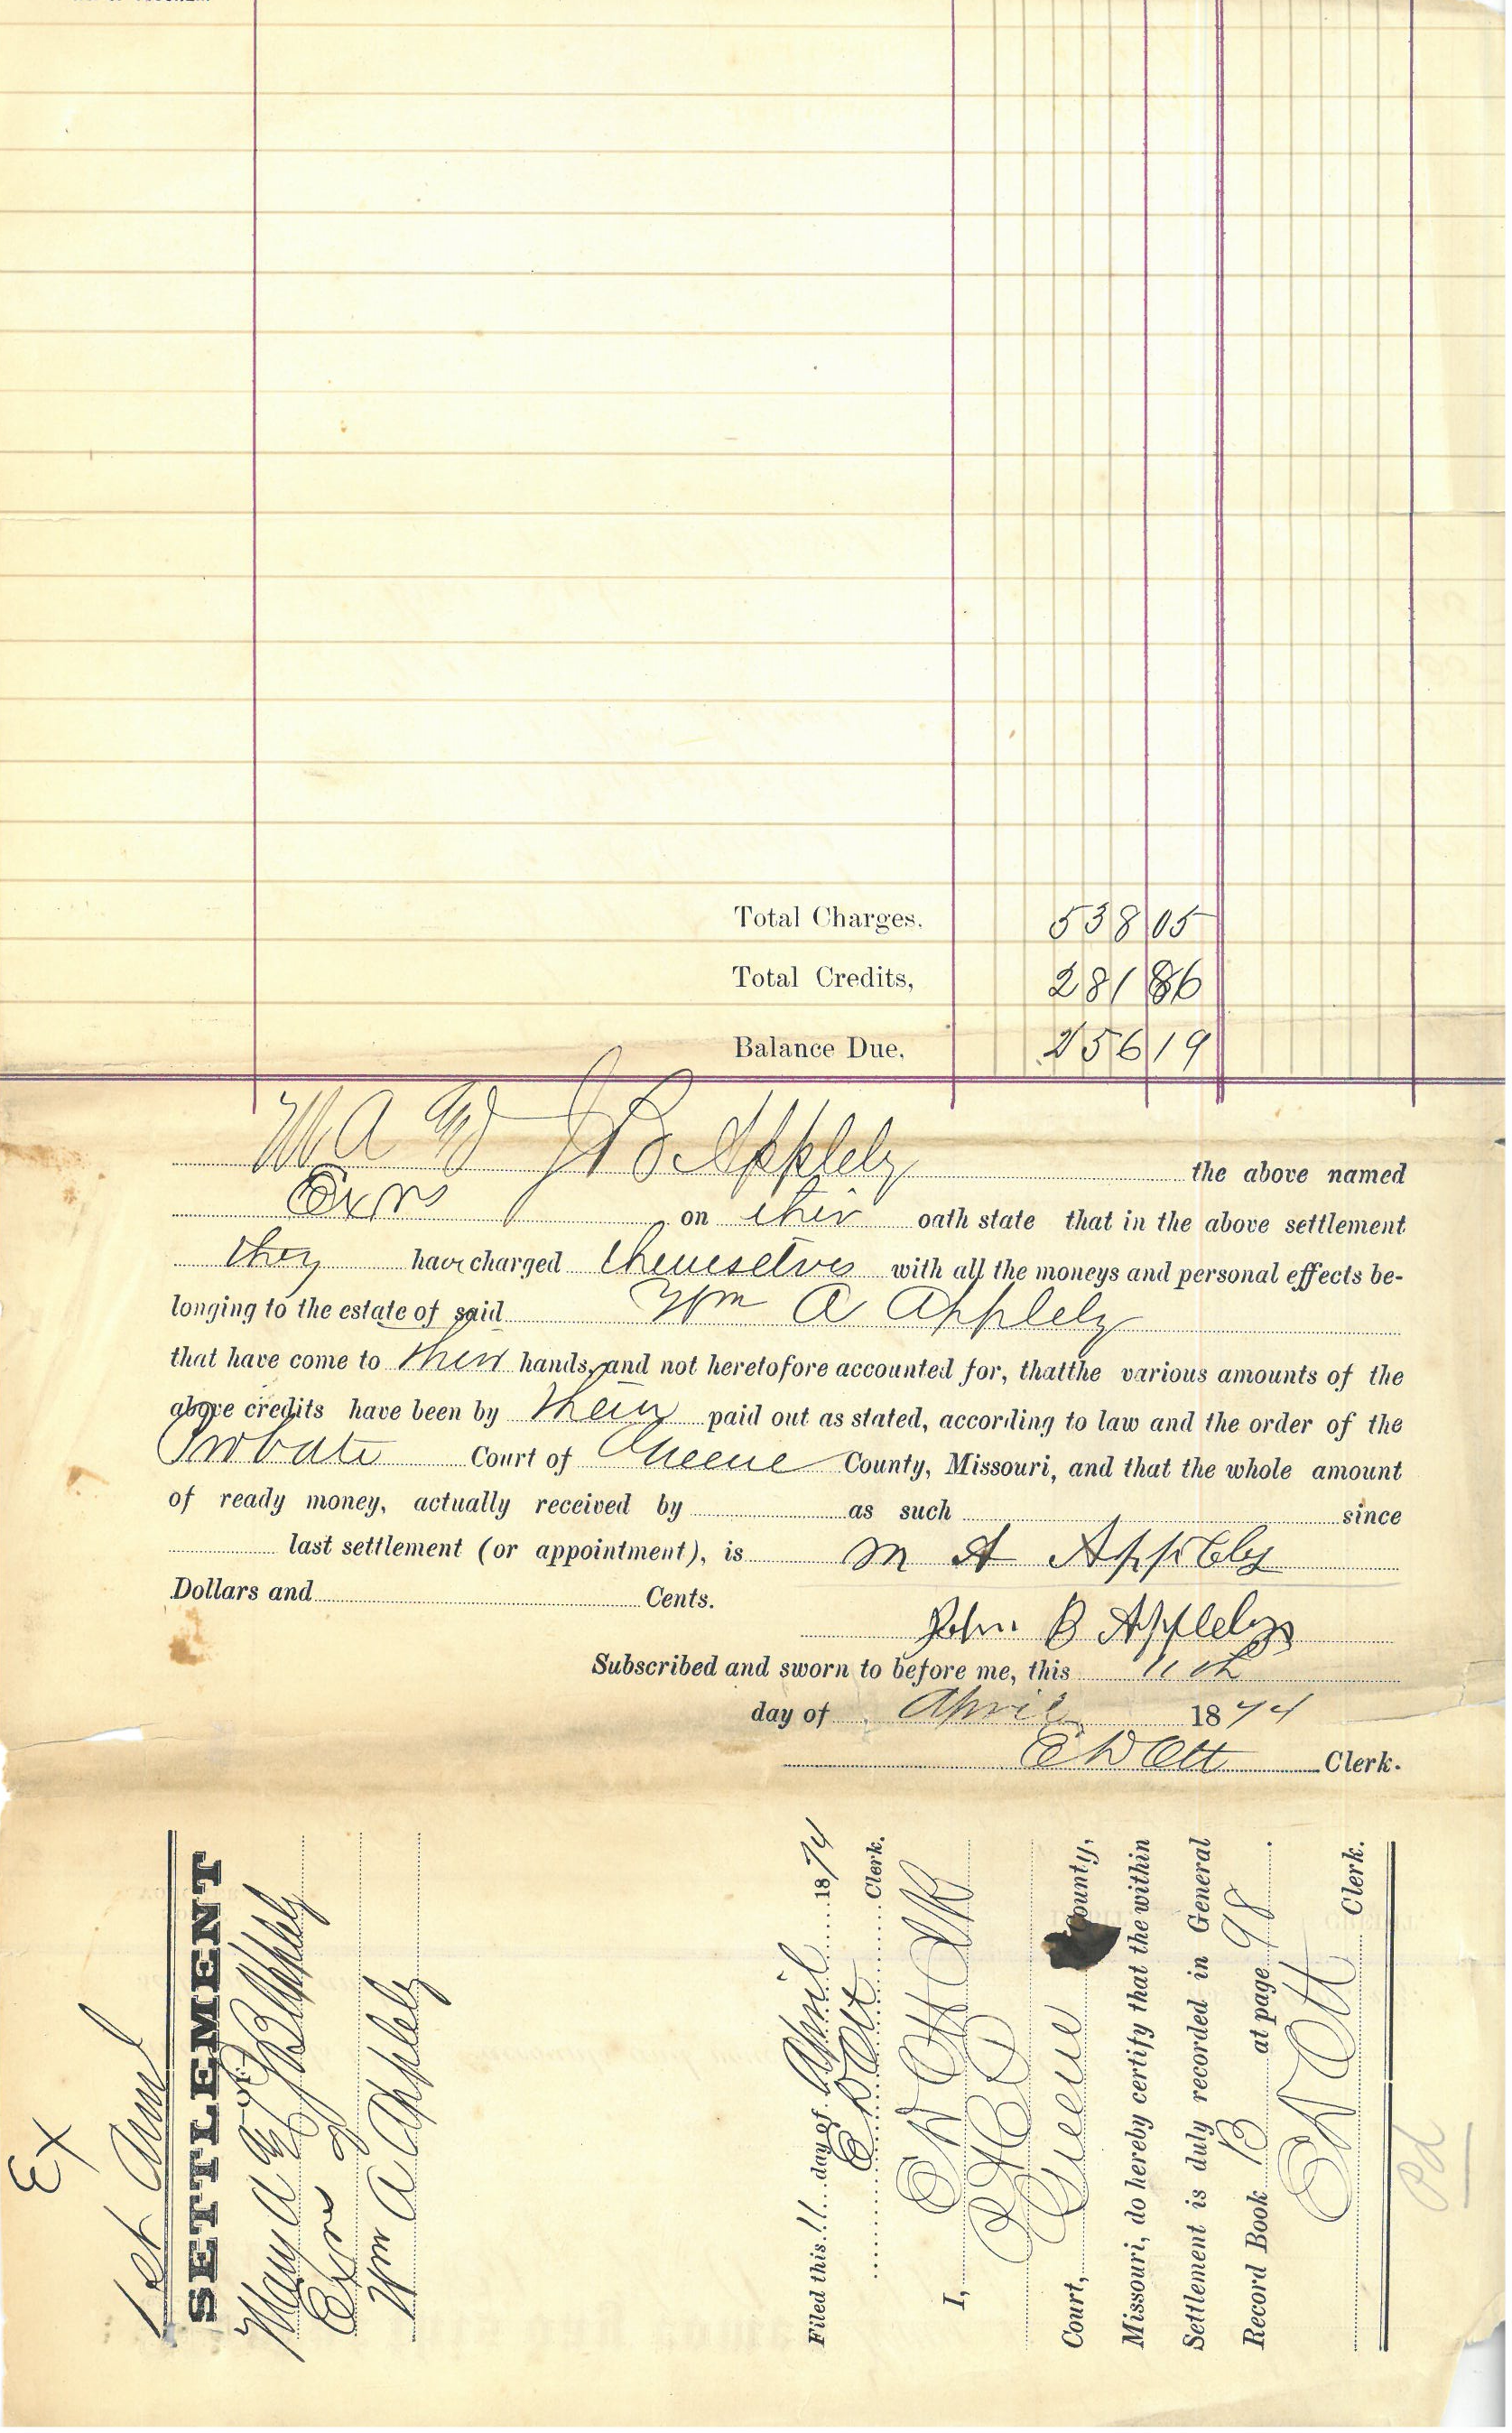 Total Charges. 538 05
Total Credits, 281 86
Balance Due. 256 19
M A & J B Appleby the above named
Exrs on their oath state that in the above settlement
they have charged themselves with all the moneys and personal effects be-
longing to the estate of said Wm A Appleby
that have come to their hands, and not heretofore accounted for, that the various amounts of the
above credits have been by them paid out as stated, according to law and the order of the
Probate Court of Greene County, Missouri, and that the whole amount
of ready money, actually received by as such since
last settlement (or appointment), is M A Appleby
Dollars and Cents.
John B Appleby
Subscribed and sworn to before me, this 11th
day of April 1874
E W Ott Clerk.
Ex
1st Annl
SETTLEMENT
Mary A & J B Appleby
Exrs of
Wm A Appleby
Filed this 11 day of April 1874
E W Ott Clerk.
I, E W Ott Clk
Court, Greene County,
Missouri, do hereby certify that the within
Settlement is duly recorded in General
Record Book B at page 98.
E W Ott Clerk.
Pd